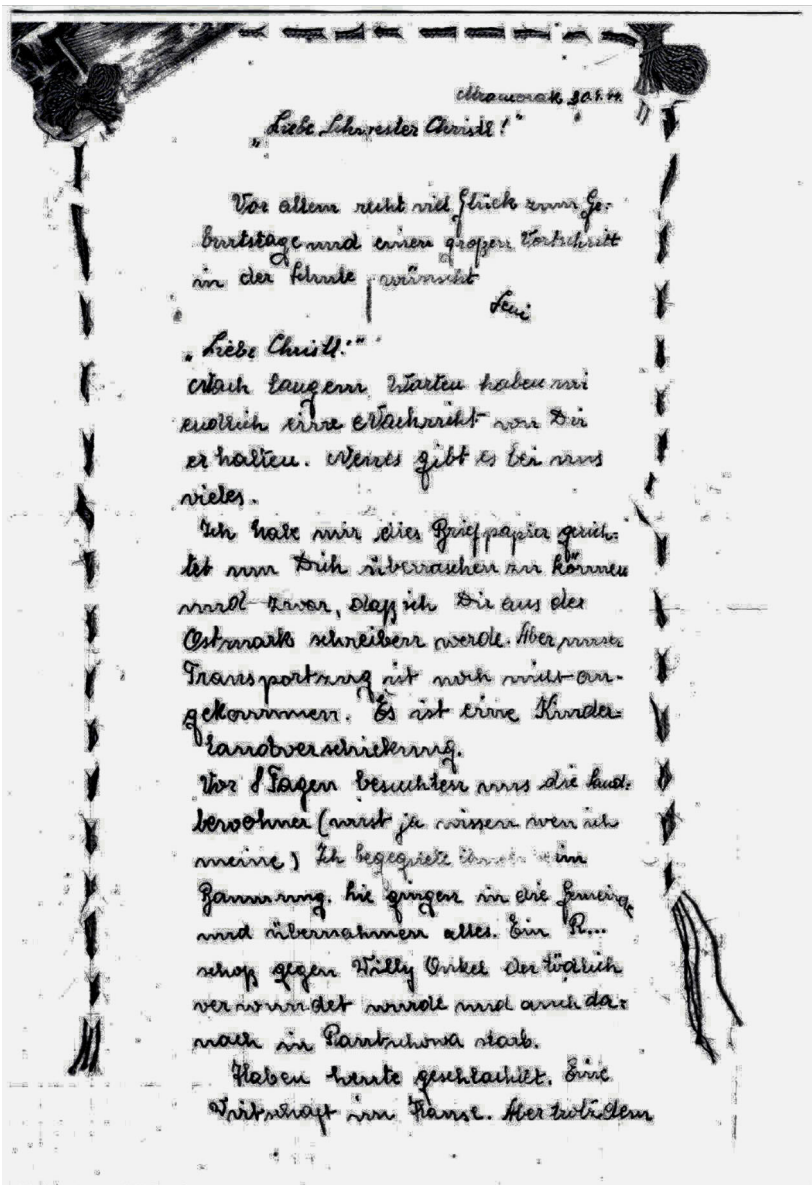 Mramorak, 30.9.44.
„Liebe Schwester Christl!"
Vor allem recht viel Glück zum Ge-
burtstage und einen großen Vortschritt
in der Schule wünscht
Leni
„Liebe Christl!"
Nach langem Warten haben wir
endlich eine Nachricht von Dir
erhalten. Neues gibt es bei uns
vieles.
Ich habe mir dies Briefpapier gerich-
tet um Dich überraschen zu können
und zwar, daß ich Dir aus der
Ostmark schreiben werde. Aber unser
Transportzug ist noch nicht an-
gekommen. Es ist eine Kinder-
landverschickung.
Vor 8 Tagen besuchten uns die Land-
bewohner (wirst ja wissen wen ich
meine) Ich begegnete ihnen beim
Sie gingen in die Gemeinde
und übernahmen alles. Ein R...
schoß gegen Willy Onkel der tödlich
verwundet wurde und auch da-
nach in Pantschowa starb.
Haben heute geschlachtet. Eine
Wirtschaft im Hause. Aber trotzdem